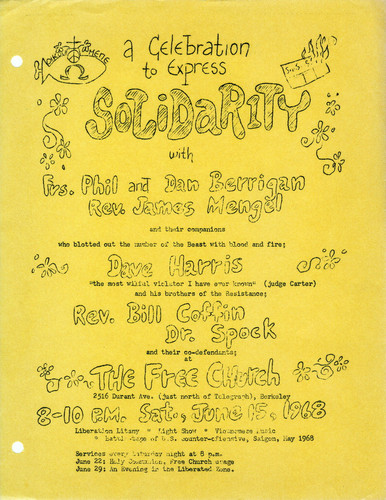 a Celebration
to Express
SOLIDARITY
with
Frs. Phil and Dan Berrigan
Rev. James Mengel
and their companions
who blotted out the number of the Beast with blood and fire;
Dave Harris
"the most wilful violator I have ever known" (judge Carter)
and his brothers of the Resistance;
Rev. Bill Coffin
Dr. Spock
and their co-defendants;
at
THE FREE CHURCH
2516 Durant Ave. (just north of Telegraph), Berkeley
8-10 P.M. Sat., June 15, 1968
Liberation Litany * Light Show * Vietnamese Music
* Latest stage of U.S. counter-offensive, Saigon, May 1968
Services every Saturday night at 8 p.m.
June 22: Holy Communion, Free Church
June 29: An Evening in the Liberated Zone.